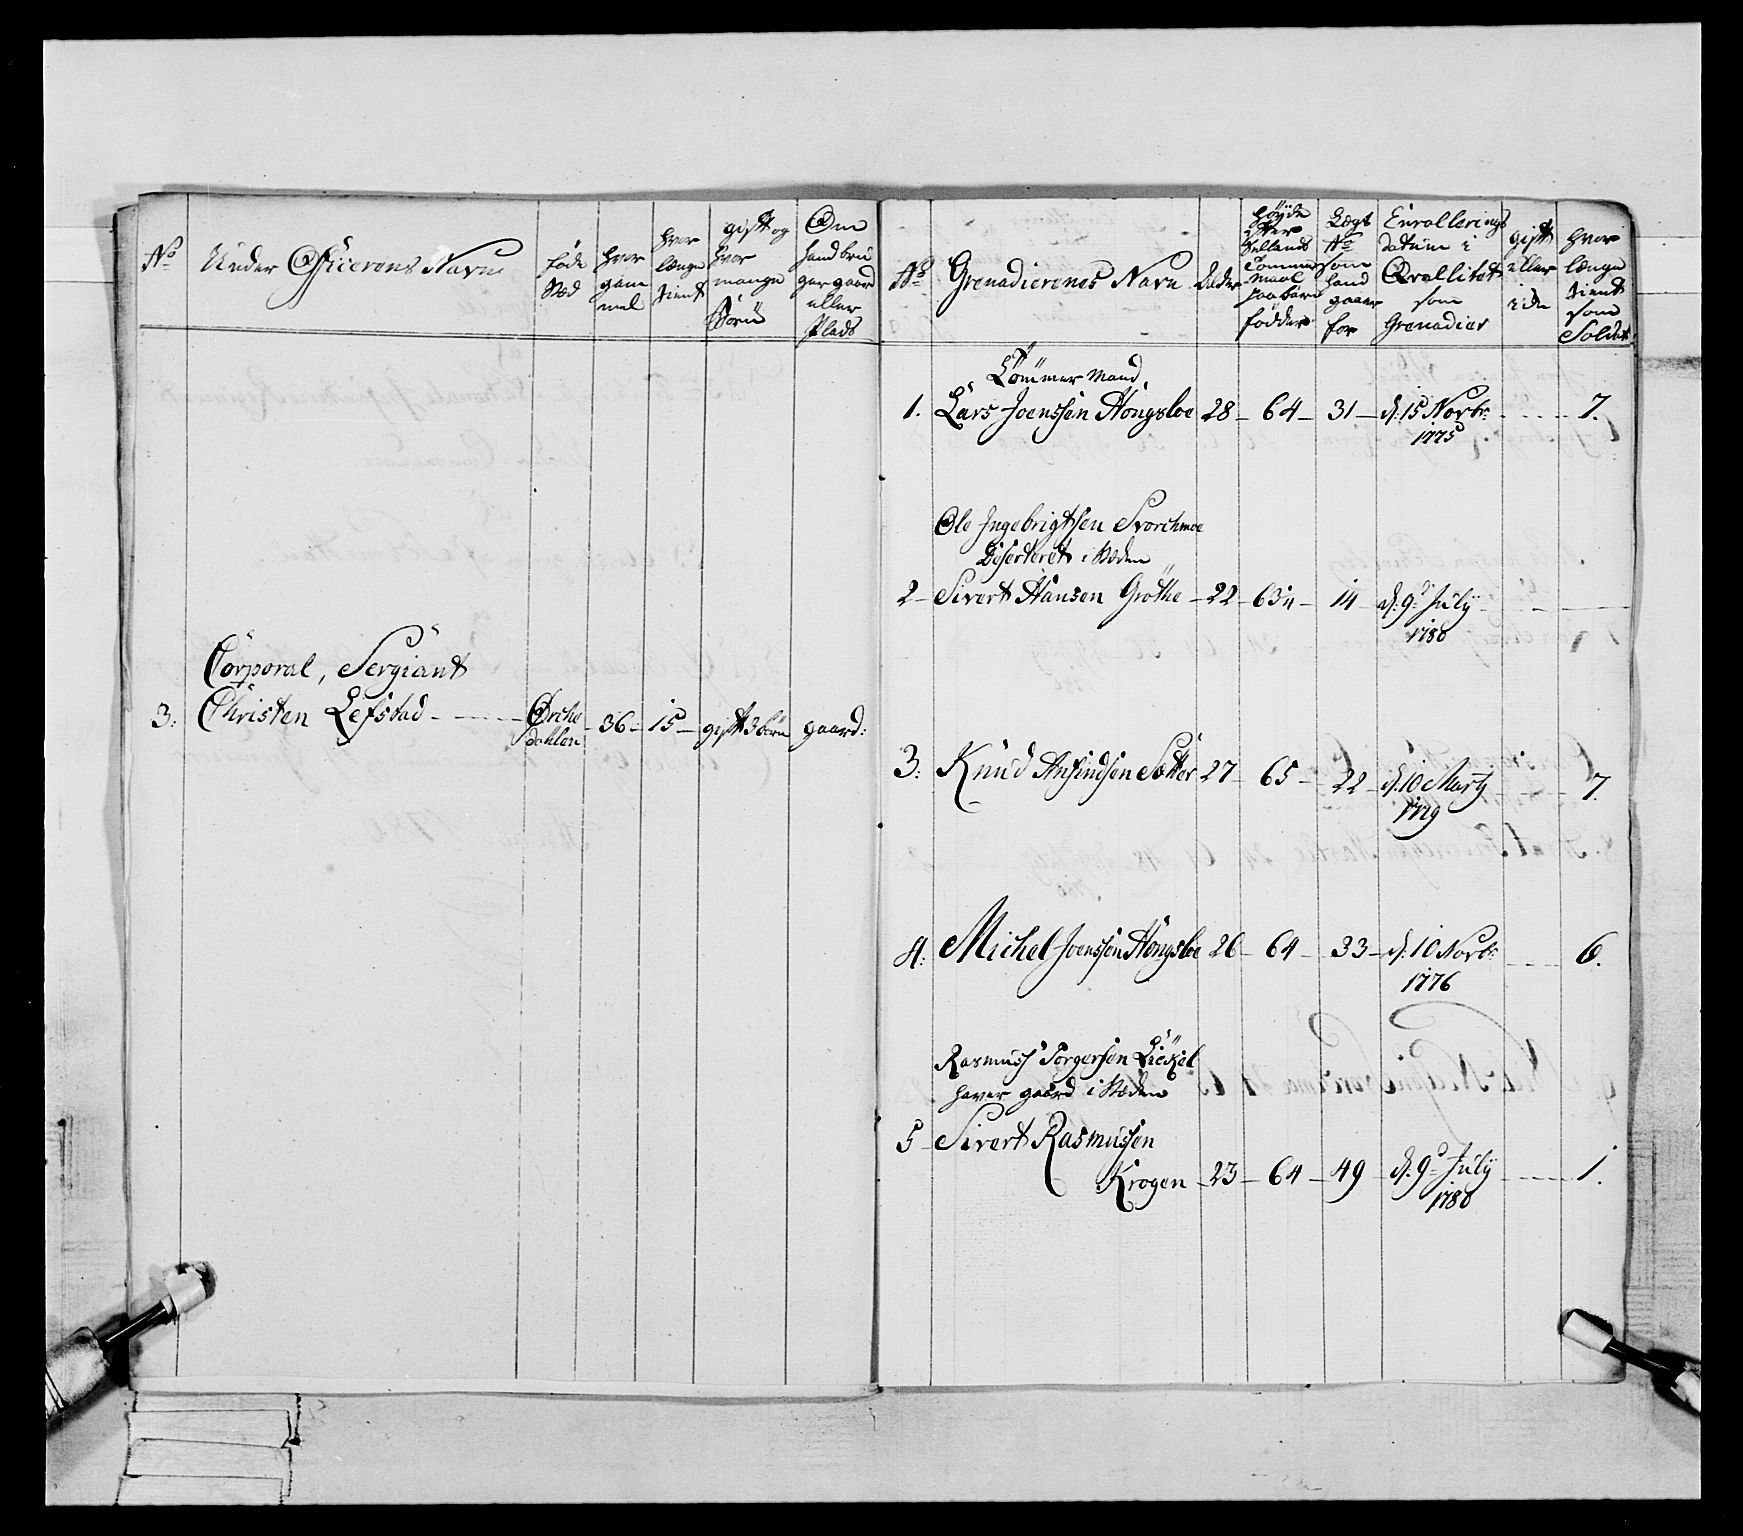 No
Under Officerens Navn
føde
Stæd
hvor
gam
mel
hvor
længe
tient
gift og
hvor
mange
Børn
Om
hand bru
ger gaard
eller
Plads
Corporal, Sergiant
3: Christen Lefstad - Ørche
dahlen - 36 - 15 - gift 3 børn gaard:
No
Grenadierenes Navn
Alder
Høyde
efter
Sellands
Tomme
Maal
paa bare
fødder
Lægt
No
som
hand
gaaer
for
Enrollerings
datum i
Qvallitet
som
Grenadier
gift
eller
ei
hvor
længe
tient
som
Soldat
Tømmer Mand,
1. Lars Joenssen Hongsloe 28 - 64 - 31 - d: 15 Novbr: - 7.
1775
Ole Ingebrigtsen Storchmoe
Deserteret i Stæden
2 - Sivert Hansen Grøthe - 22 - 63¼ - 14 - d: 9de July -
1780
3: Knud Arfindsen Sætter 27 - 65 - 22 - d: 10 Marty - 7.
1779
4: Michel Joenssen Hongsloe 26 - 64 - 33 - d: 10 Novbr: - 6.
1776
Rasmus Torgersen
haver gaard i Stæden
5 - Sivert Rasmussen
Krogen - 23 - 64 - 49 - d: 9de July - 1.
1780